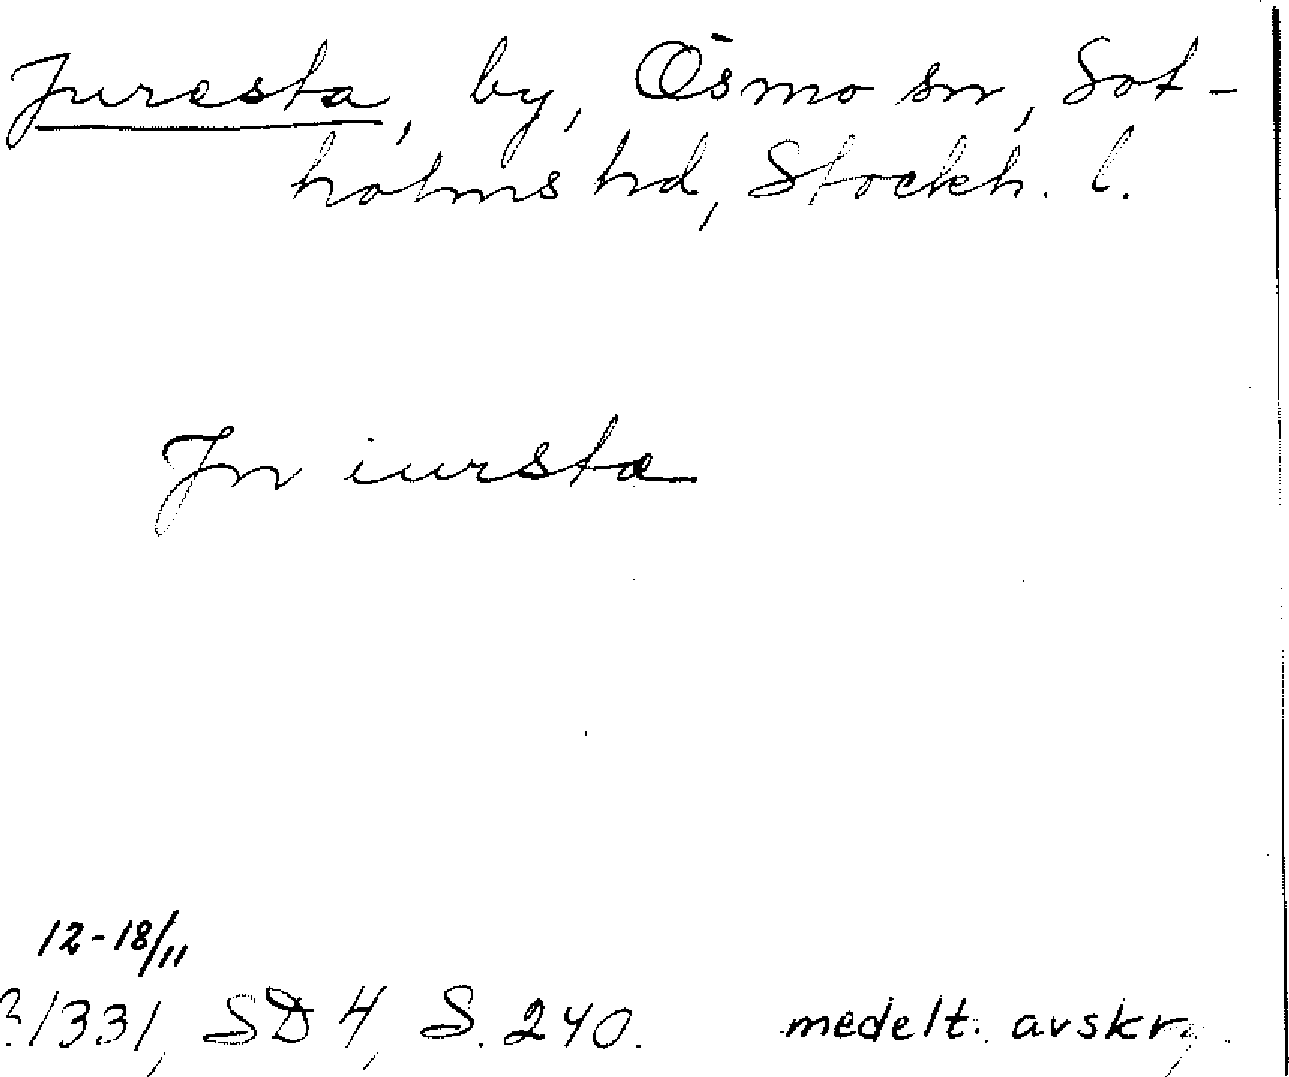 Juresta, by, Ösmo sn, Sot-
holms hd, Stockh. l.
Jn iursta
12-18/11
? 1331, SD 4, S. 240. medelt. avskr.